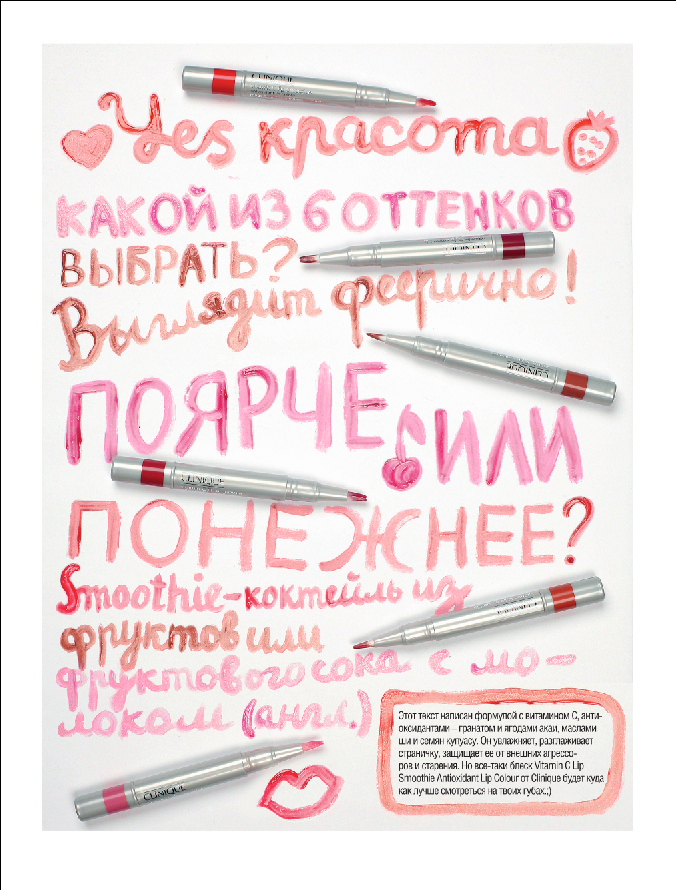 CLINIQUE
Yes красота
КАКОЙ ИЗ 6 ОТТЕНКОВ
ВЫБРАТЬ?
Выглядит феерично!
CLINIQUE
ПОЯРЧЕ ИЛИ
CLINIQUE
ПОНЕЖНЕЕ?
Smoothie-коктейль из
фруктов или
фруктового сока с мо-
локом (англ.)
Этот текст написан формулой с витамином С, анти-
оксидантами – гранатом и ягодами акаи, маслами
ши и семян купуасу. Он увлажняет, разглаживает
страничку, защищает ее от внешних агрессо-
ров и старения. Но все-таки блеск Vitamin C Lip
Smoothie Antioxidant Lip Colour от Clinique будет куда
как лучше смотреться на твоих губах.;)
CLINIQUE